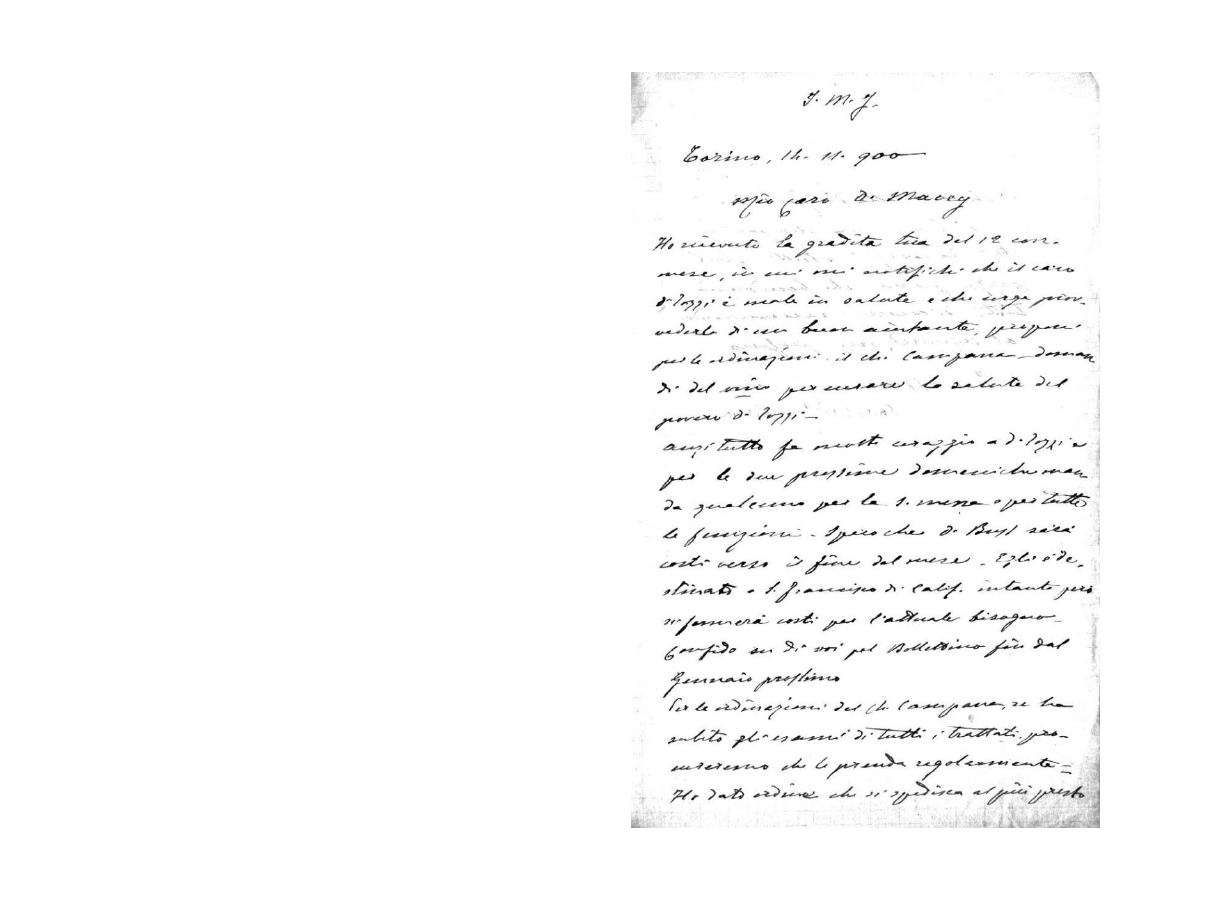 J. M. J.
Torino, 14. 11. 900
Mio caro D. Macey
Ho ricevuto la gradita tua del 12 corr.
mese, in cui mi notifichi che il caro
D. Tozzi è male in salute e che urge prov-
vederlo di un buon aiutante, proponi
per le ordinazioni il ch. Campana - doman
di del vino per curare la salute del
povero D. Tozzi -
anzitutto fa molto coraggio a D. Tozzi e
per le due prossime domeniche man
da qualcuno per la S. messa e per tutte
le funzioni. Spero che D. Buss sarà
costì verso il fine del mese. Egli è de-
stinato a S. Francisco di Calif. intanto però
si fermerà costì per l'attuale bisogno -
Confido su di voi pel Bollettino fin dal
Gennaio prossimo
Per le ordinazioni del ch. Campana, se ha
subito gli esami di tutti i trattati, pro-
cureremo che le prenda regolarmente =
Ho dato ordine che si spedisca al più presto